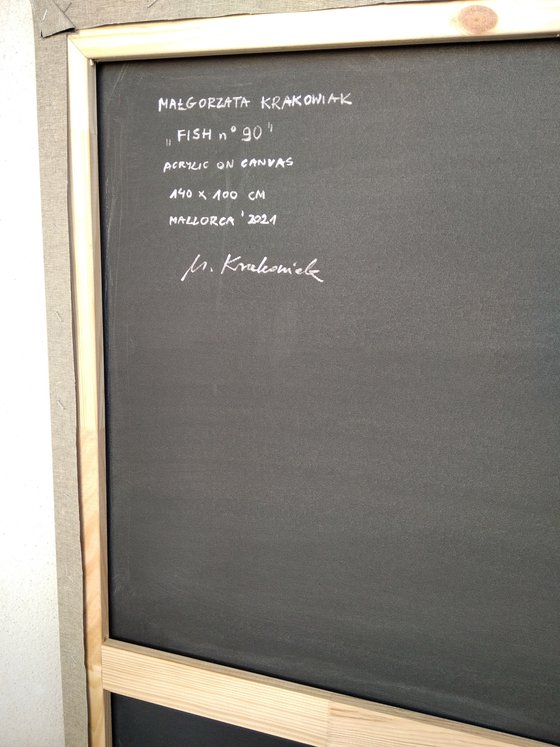 MAŁGORZATA KRAKOWIAK
„FISH nº 90"
ACRYLIC ON CANVAS
140 x 100 CM
MALLORCA '2021
M. Krakowiak